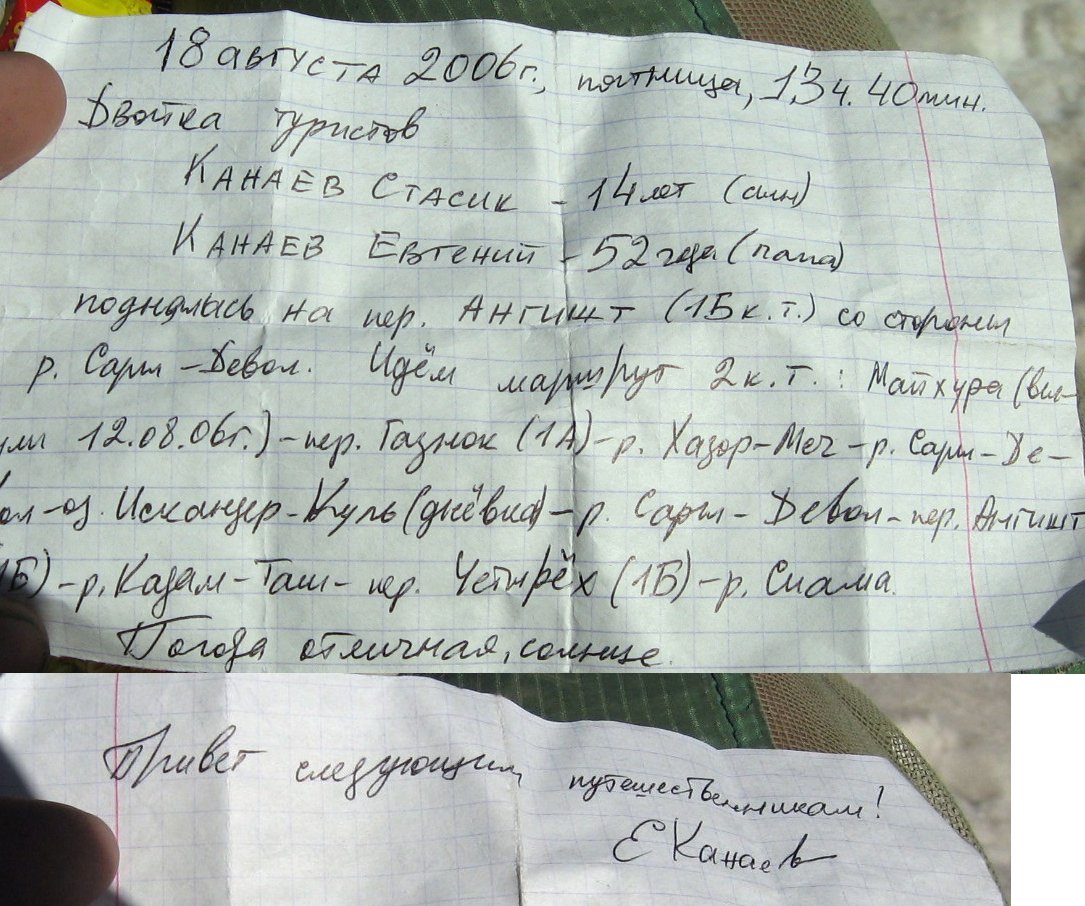 18 августа 2006г., пятница, 13ч. 40мин.
Двойка туристов
Канаев Стасик - 14 лет (сын)
Канаев Евгений - 52 года (папа)
поднялась на пер. Ангишт (1Б к.т.) со стороны
р. Сары-Девол. Идём маршрут 2 к.т.: Майхура (вы-
шли 12.08.06г.) - пер. Газнок (1А) - р. Хазор-Меч - р. Сары-Де-
вол - оз. Искандер-Куль (днёвка) - р. Сары-Девол - пер. Ангишт
(1Б) - р. Казам-Таш - пер. Четырёх (1Б) - р. Сиама.
Погода отличная, солнце.
Привет следующим путешественникам!
Е Канаев